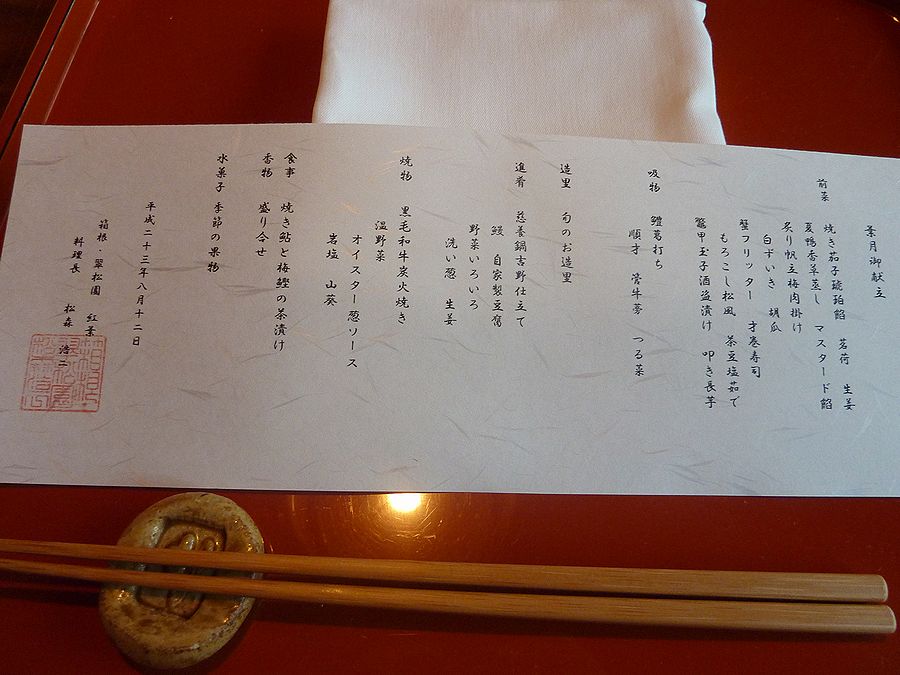 葉月御献立
前菜
焼き茄子琥珀餡 茗荷 生姜
夏鴨香草蒸し マスタード餡
炙り帆立梅肉掛け
白ずいき 胡瓜
蟹フリッター 才巻寿司
もろこし松風 茶豆塩茹で
鼈甲玉子酒盗漬け 叩き長芋
吸物 鱧葛打ち
順才 管牛蒡 つる菜
造里 旬のお造里
進肴 慈養鍋吉野仕立て
鰻 自家製豆腐
野菜いろいろ
洗い葱 生姜
焼物 黒毛和牛炭火焼き
温野菜
オイスター葱ソース
岩塩 山葵
食事 焼き鮎と梅鰹の茶漬け
香物 盛り合せ
水菓子 季節の果物
平成二十三年八月十二日
箱根・翠松園 紅葉
料理長 松森 浩二